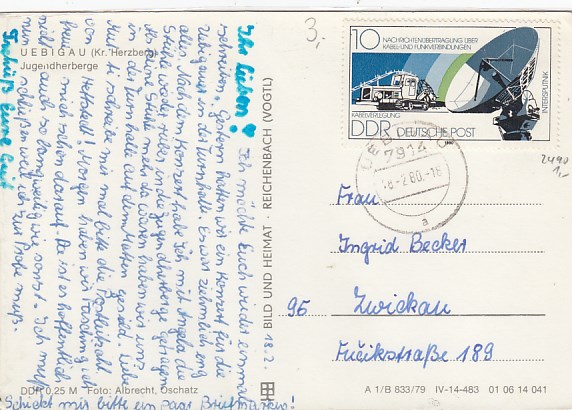 3,-
UEBIGAU (Kr. Herzberg)
Jugendherberge
Ihr Lieben! Ich möchte Euch wieder einmal
schreiben. Gestern hatten wir ein Konzert für die
Uebigauer in der Turnhalle. Es war ziemlich eng
alles. Nach dem Konzert habe ich mit Angela die
Stühle wieder rüber in die Jugendherberge getragen.
Als keine Stühle mehr da waren haben wir uns
in der Turnhalle auf den Matten gesielt. Liebe
Mutti schreibe mir mal bitte die Postleitzahl
von Hettstedt! Morgen haben wir Fasching, ich
freue mich schon darauf. Da ist es hoffentlich
nicht auch so langweilig wie sonst. Ich muß
schließen weil ich zur Probe muß.
Tschüß Eure
Schickt mir bitte ein paar Briefmarken!
18.2.
DDR 0,25 M Foto: Albrecht, Oschatz
BILD UND HEIMAT · REICHENBACH (VOGTL)
10 NACHRICHTENÜBERTRAGUNG ÜBER
KABEL-UND FUNKVERBINDUNGEN
INTERSPUTNIK
KABELVERLEGUNG
DDR DEUTSCHE POST
7914
18.-2.80.-16
a
2490
1,-
Frau
Ingrid Becker
95 Zwickau
Fučikstraße 189
A 1/B 833/79 IV-14-483 01 06 14 041